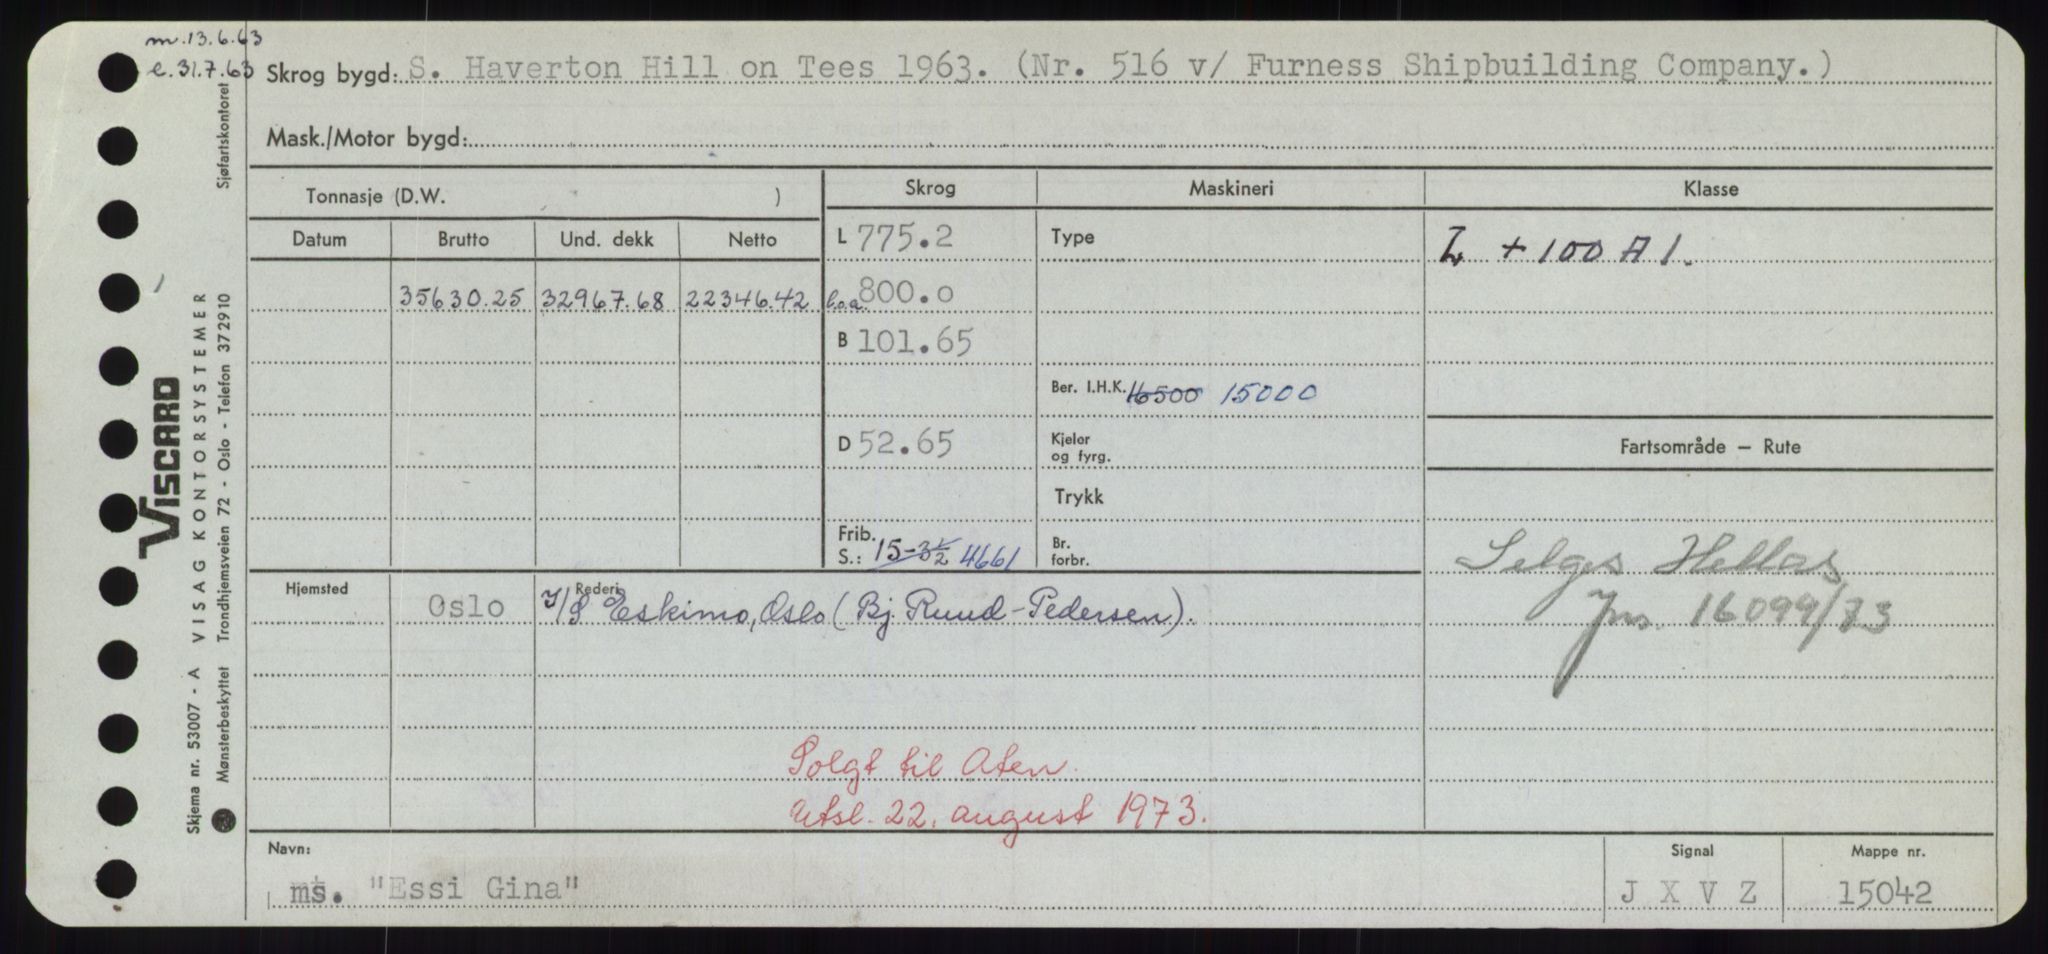 m. 13.6.63
e. 31.7.63
Skrog bygd: S. Haverton Hill on Tees 1963. (Nr. 516 v/ Furness Shipbuilding Company.)
Mask./Motor bygd:
Tonnasje (D.W. )
Skrog Maskineri Klasse
Datum Brutto Und. dekk Netto
L 775.2
Type
L + 100 A 1.
35630.25 32967.68 22346.42
l.o.a. 800.o
B 101.65
Ber. I.H.K. 16500 15000
D 52.65
Kjeler
og fyrg.
Fartsområde — Rute
Trykk
Frib.
S.: 15-3½ 4661
Br.
forbr.
Selges Hellas
Jnr. 16099/73
Hjemsted
Rederi
Oslo I/S Eskimo, Oslo (Bj. Ruud-Pedersen).
Solgt til Aten.
Utsl. 22. august 1973.
Navn:
ms. "Essi Gina"
Signal
J X V Z
Mappe nr.
15042
Skjema nr. 53007 - A VISAG KONTORSYSTEMER
VISCARD
Mønsterbeskyttet Trondhjemsveien 72 - Oslo - Telefon 372910
Sjøfartskontoret